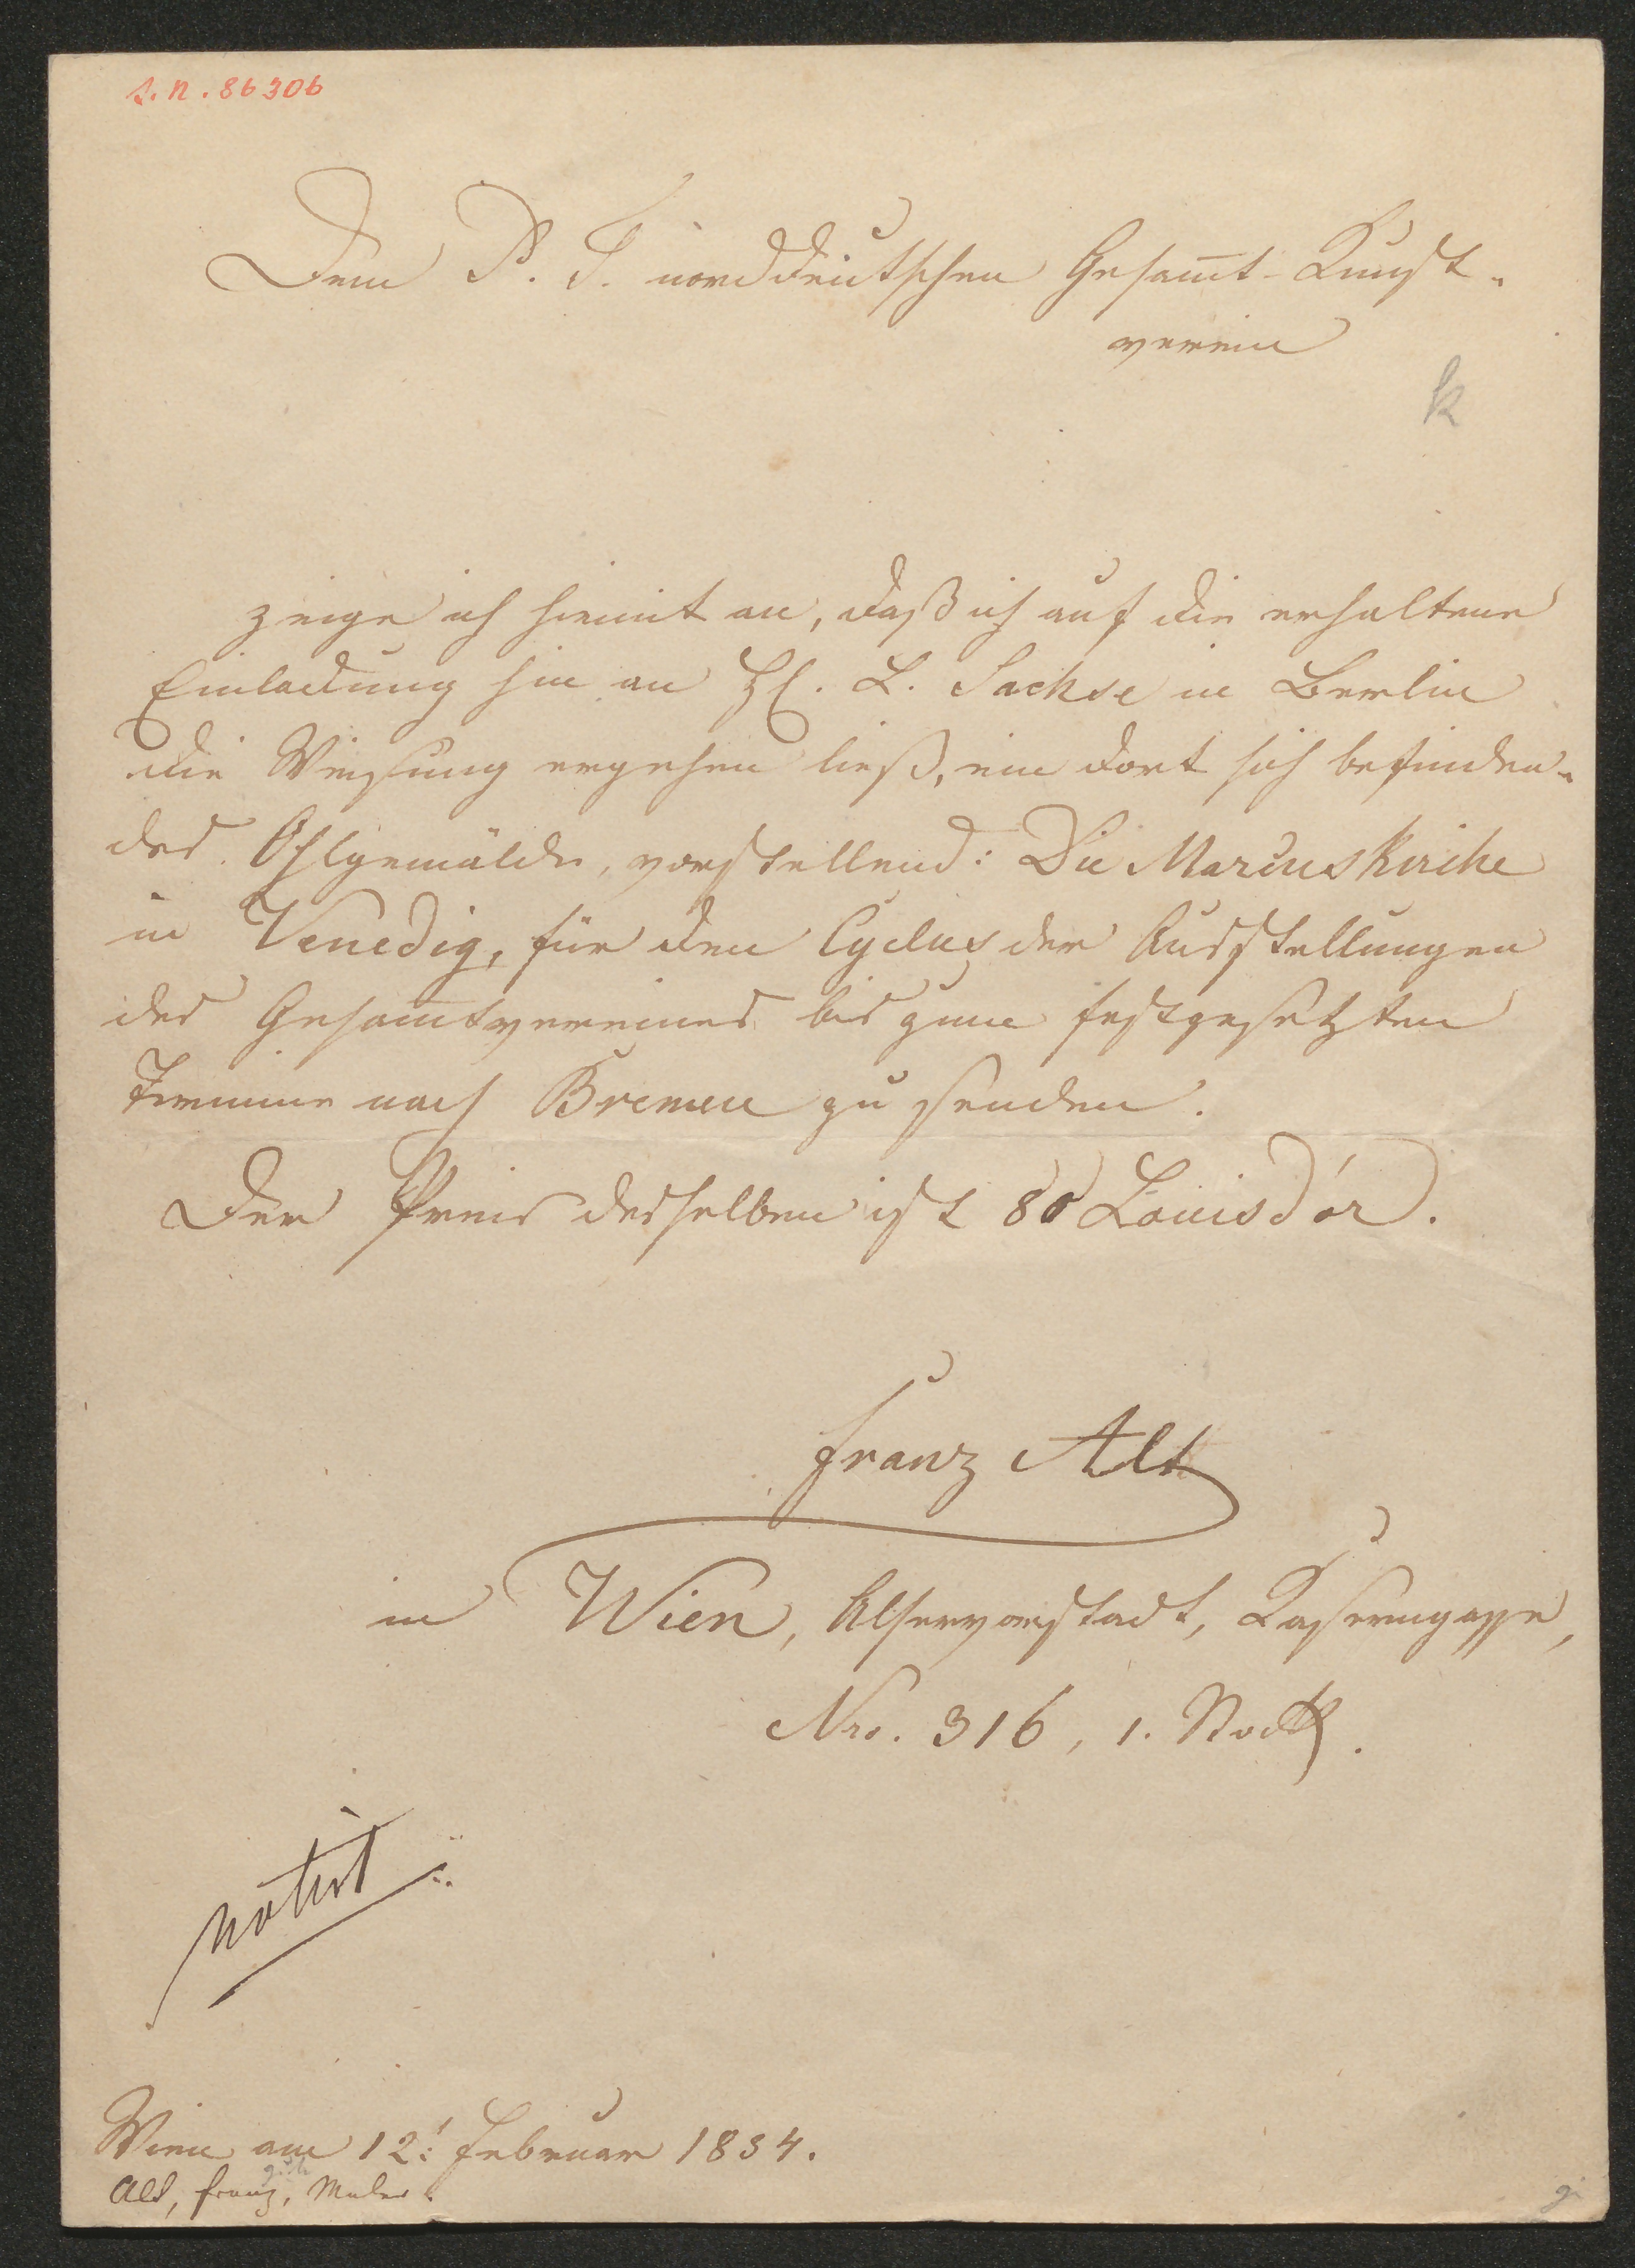 I. N. 86306
Dem P. T. norddeutschen Gesam̅t-Kunst-
verein
k
zeige ich hiemit an, daß ich auf die erhaltene
Einladung hin an H. L. Sachse in Berlin
die Weisung ergehen ließ, ein dort sich befinden-
des Öhlgemälde, vorstellend: Die Marcuskirche
in Venedig, für den Cyclus der Ausstellungen
des Gesam̅tvereines bis zum festgesetzten
Termine nach Bremen zu senden.
Der Preis desselben ist 80 Louisd'or.
Franz Alt
in Wien, Alservorstadt, Kaserngasse,
Nro. 316, 1. Stock.
notirt
Wien am 12. Februar 1854.
Alt, Franz, Maler.